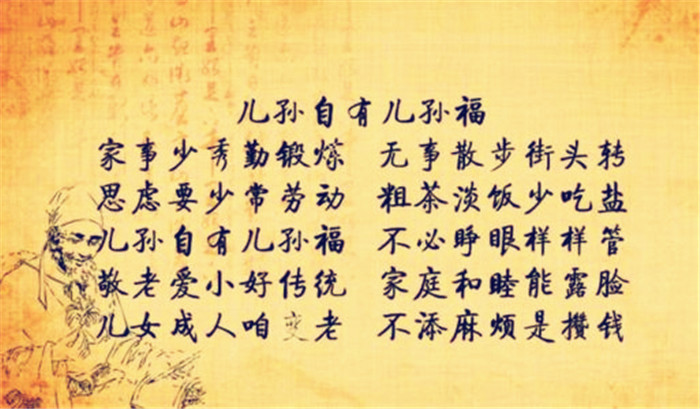 儿孙自有儿孙福
家事少秀勤锻炼 无事散步街头转
思虑要少常劳动 粗茶淡饭少吃盐
儿孙自有儿孙福 不必睁眼样样管
敬老爱小好传统 家庭和睦能露脸
儿女成人咱变老 不添麻烦是攒钱